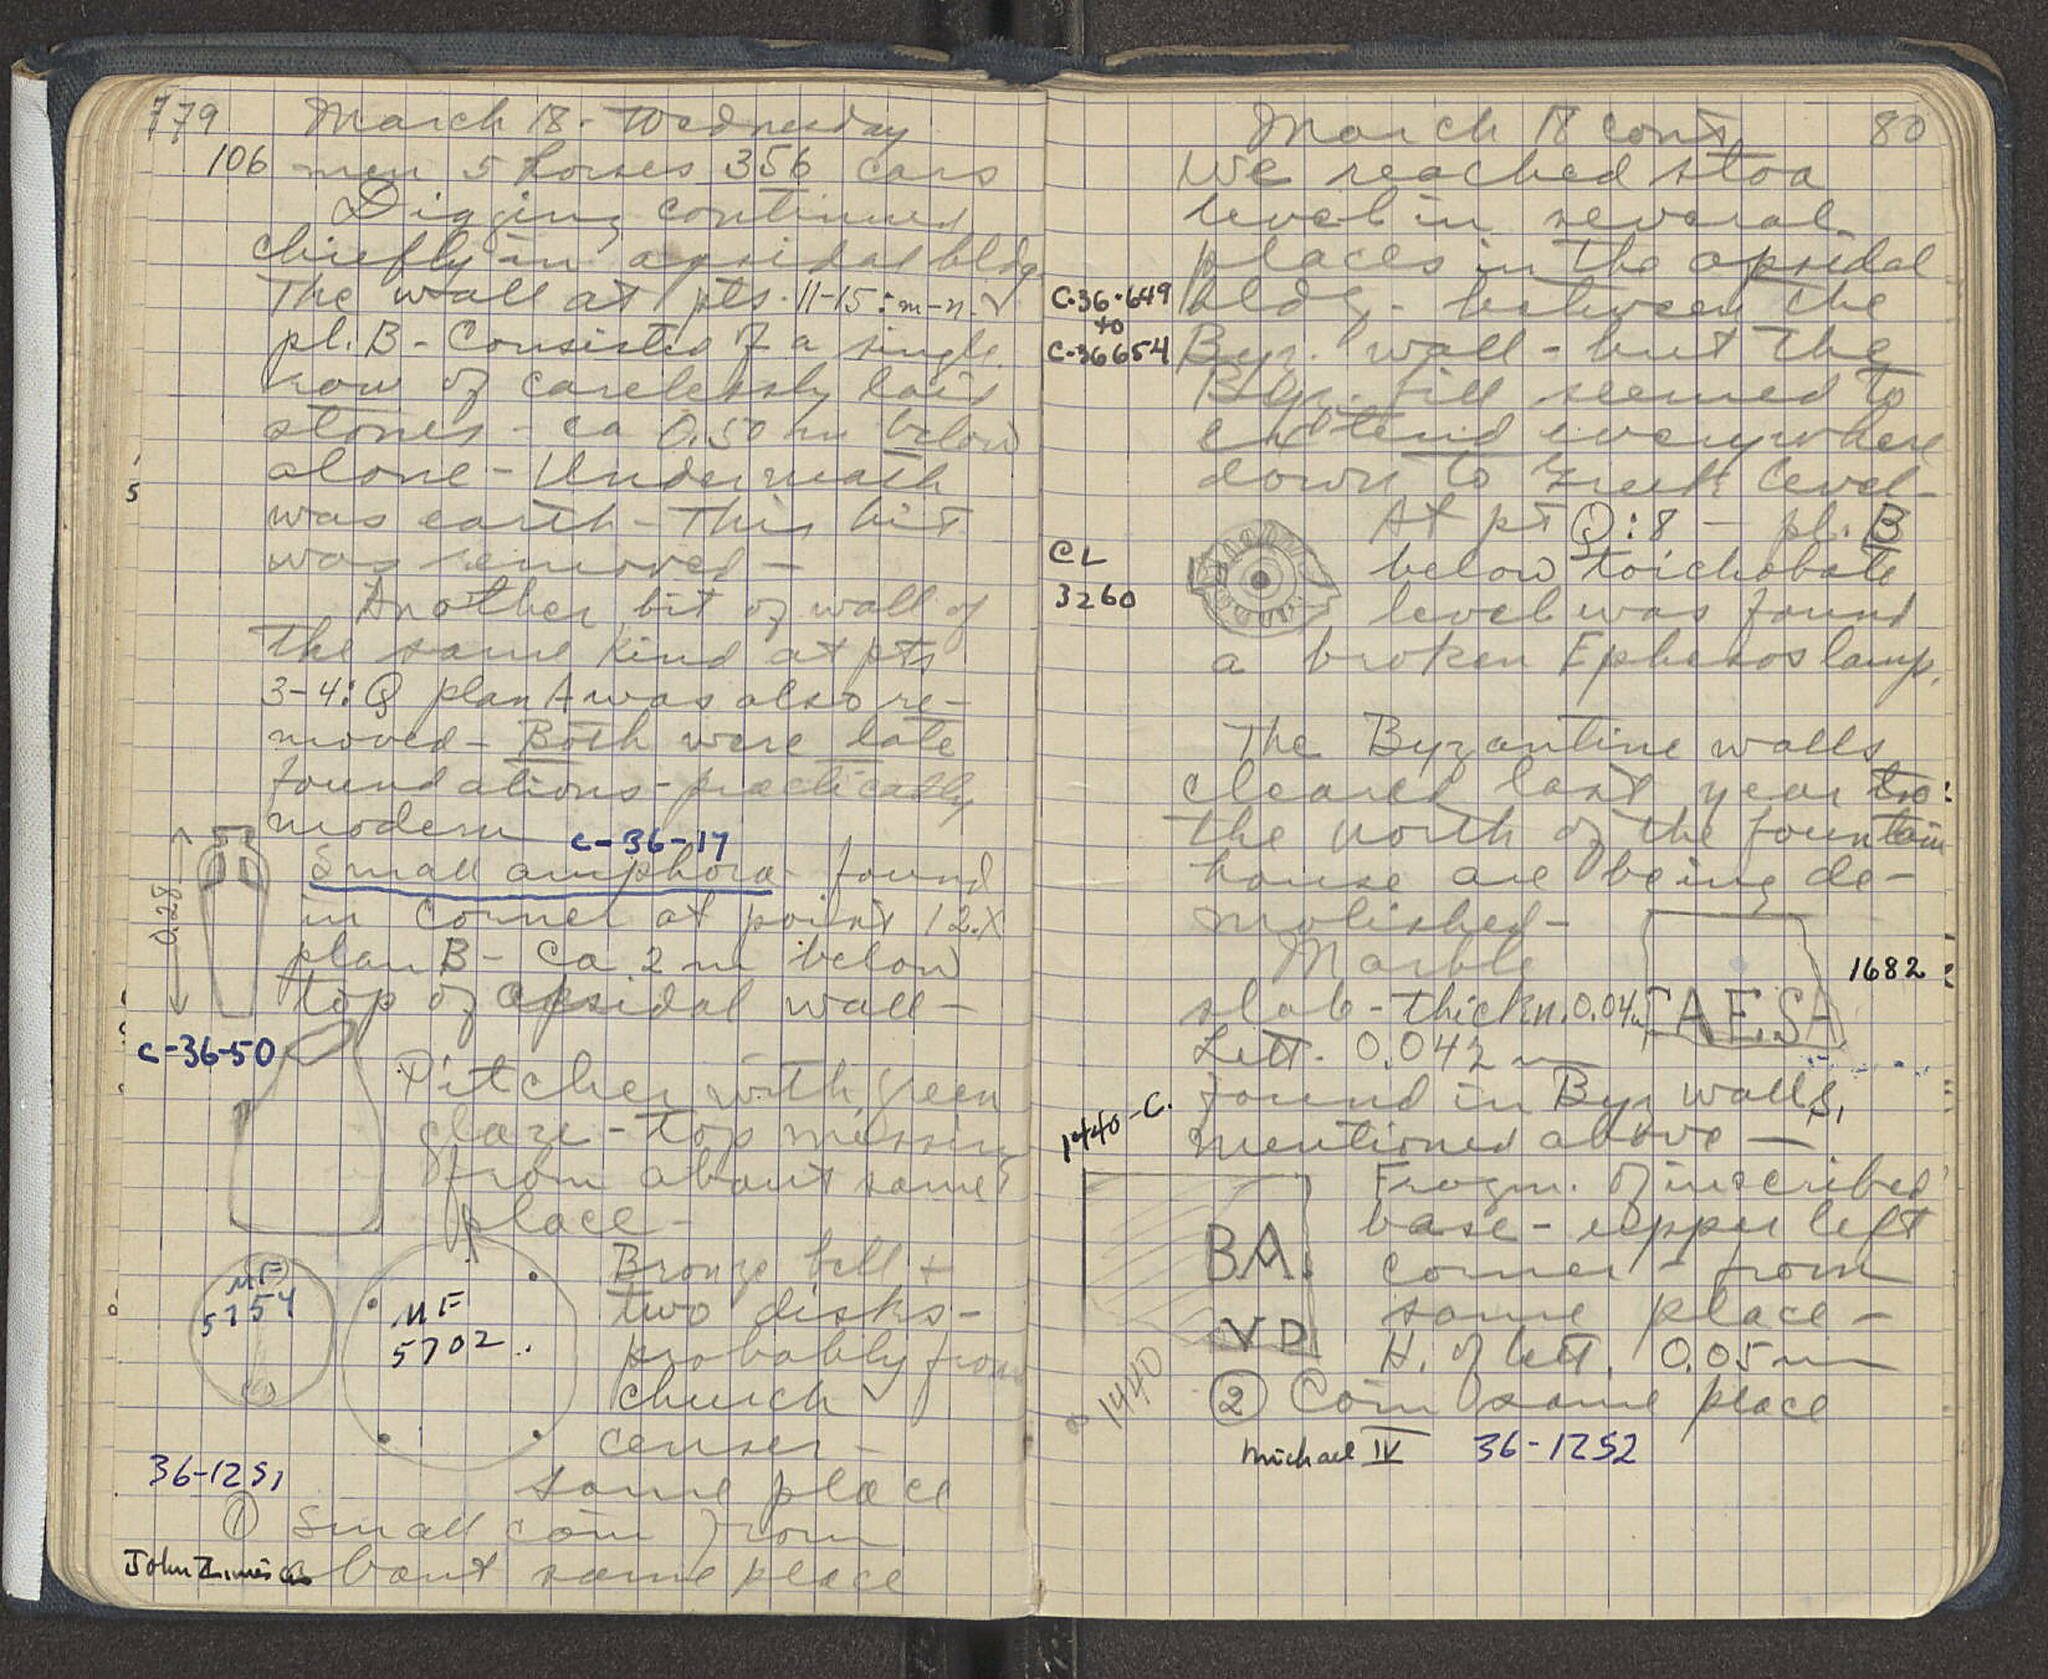 79
March 18 - Wednesday
106 men 5 horses 356 cars
Digging continued
chiefly in apsidal bldg.
The wall at pts. 11-15 : m-n.
pl. B - Consisted of a single
row of carelessly laid
stones - ca 0.50 m below
alone - Underneath
was earth - This bit
was removed -
Another bit of wall of
the same kind at pts
3-4: Q plan A was also re-
moved - Both were late
foundations - practically
modern
C-36-17
Small amphora found
in corner at point 12.X
plan B - Ca 2 m below
top of apsidal wall -
0.28
C-36-50
Pitcher with green
glaze - top missing
from about same
place -
Bronze bell +
two disks -
probably from
church
censer -
same place
MF
5754
MF
5702
36-1251
① Small coin from
about same place
John Zimis
80
March 18 cont
We reached stoa
level in several
places in the apsidal
bldg - between the
Byz. wall - but the
Byz. fill seemed to
extend everywhere
down to Greek level -
C-36-649
to
C-36654
At pt Q:8 - pl. B
below toichobate
level was found
a broken Ephesos lamp.
CL
3260
The Byzantine walls
cleared last year to
the north of the fountain
house are being de-
molished -
Marble
slab - thickn. 0.04m
Lett. 0.042 m
found in Byz walls,
mentioned above -
CAESA
1682
1440-C.
Fragm. of inscribed
base - upper left
corner - from
same place -
H. of lett. 0.05 m
BA
VP
1440
② Coin same place
Michael IV 36-1252